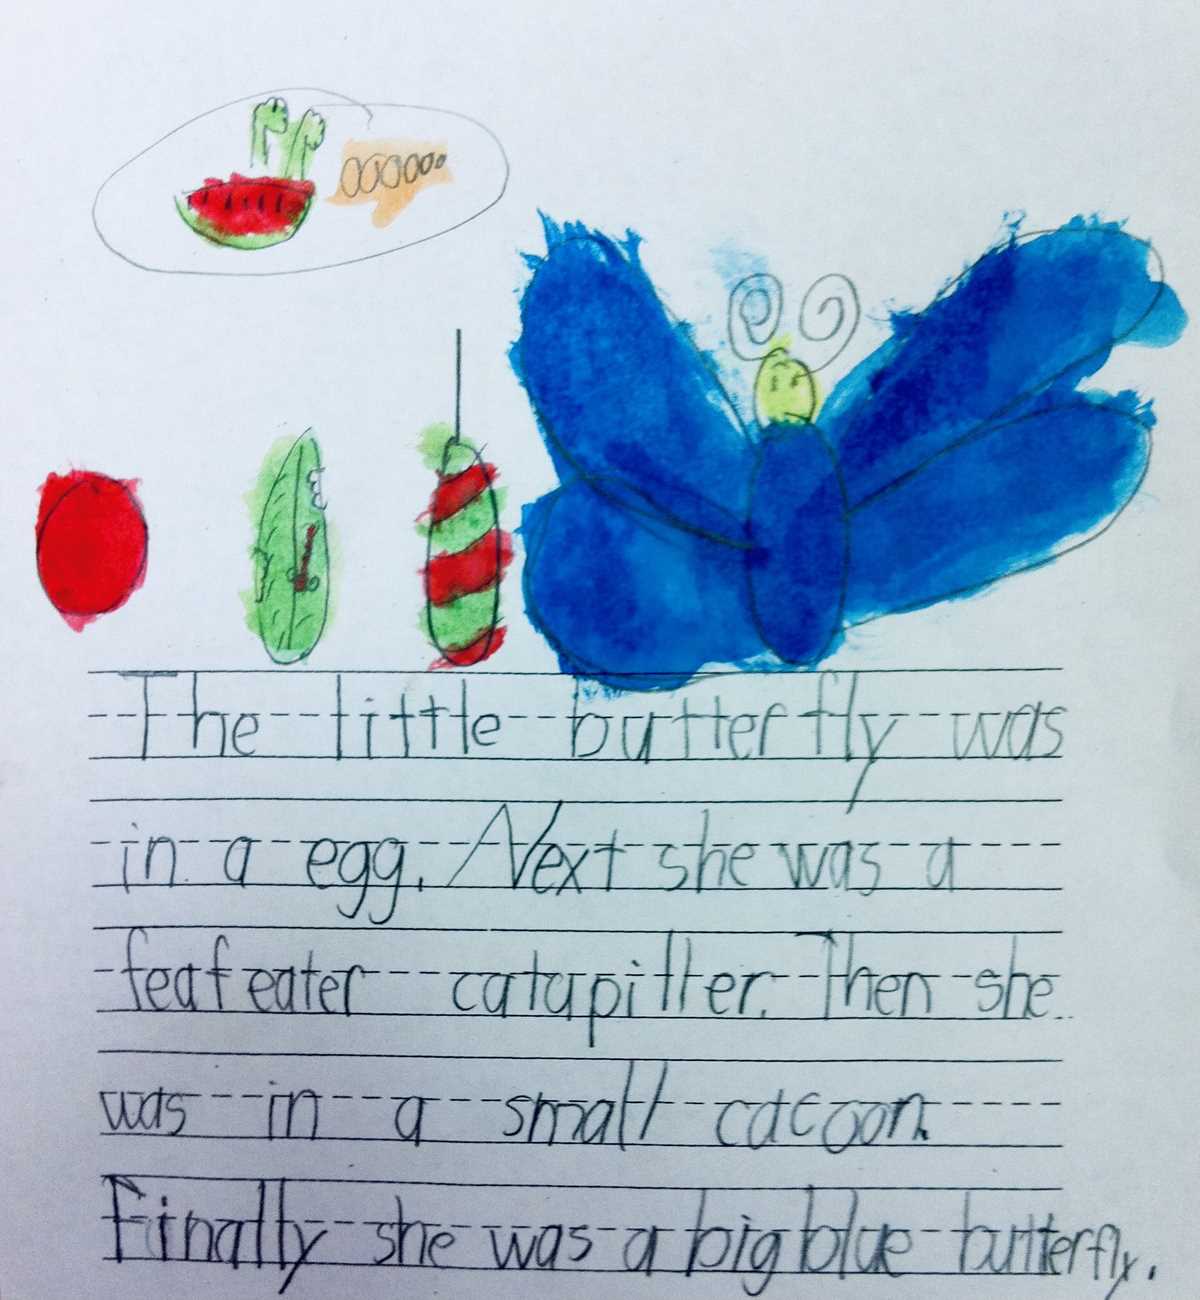 The little butterfly was
in a egg. Next she was a
leaf eater catapiller. Then she
was in a small cacoon.
Finally she was a big blue butterfly.